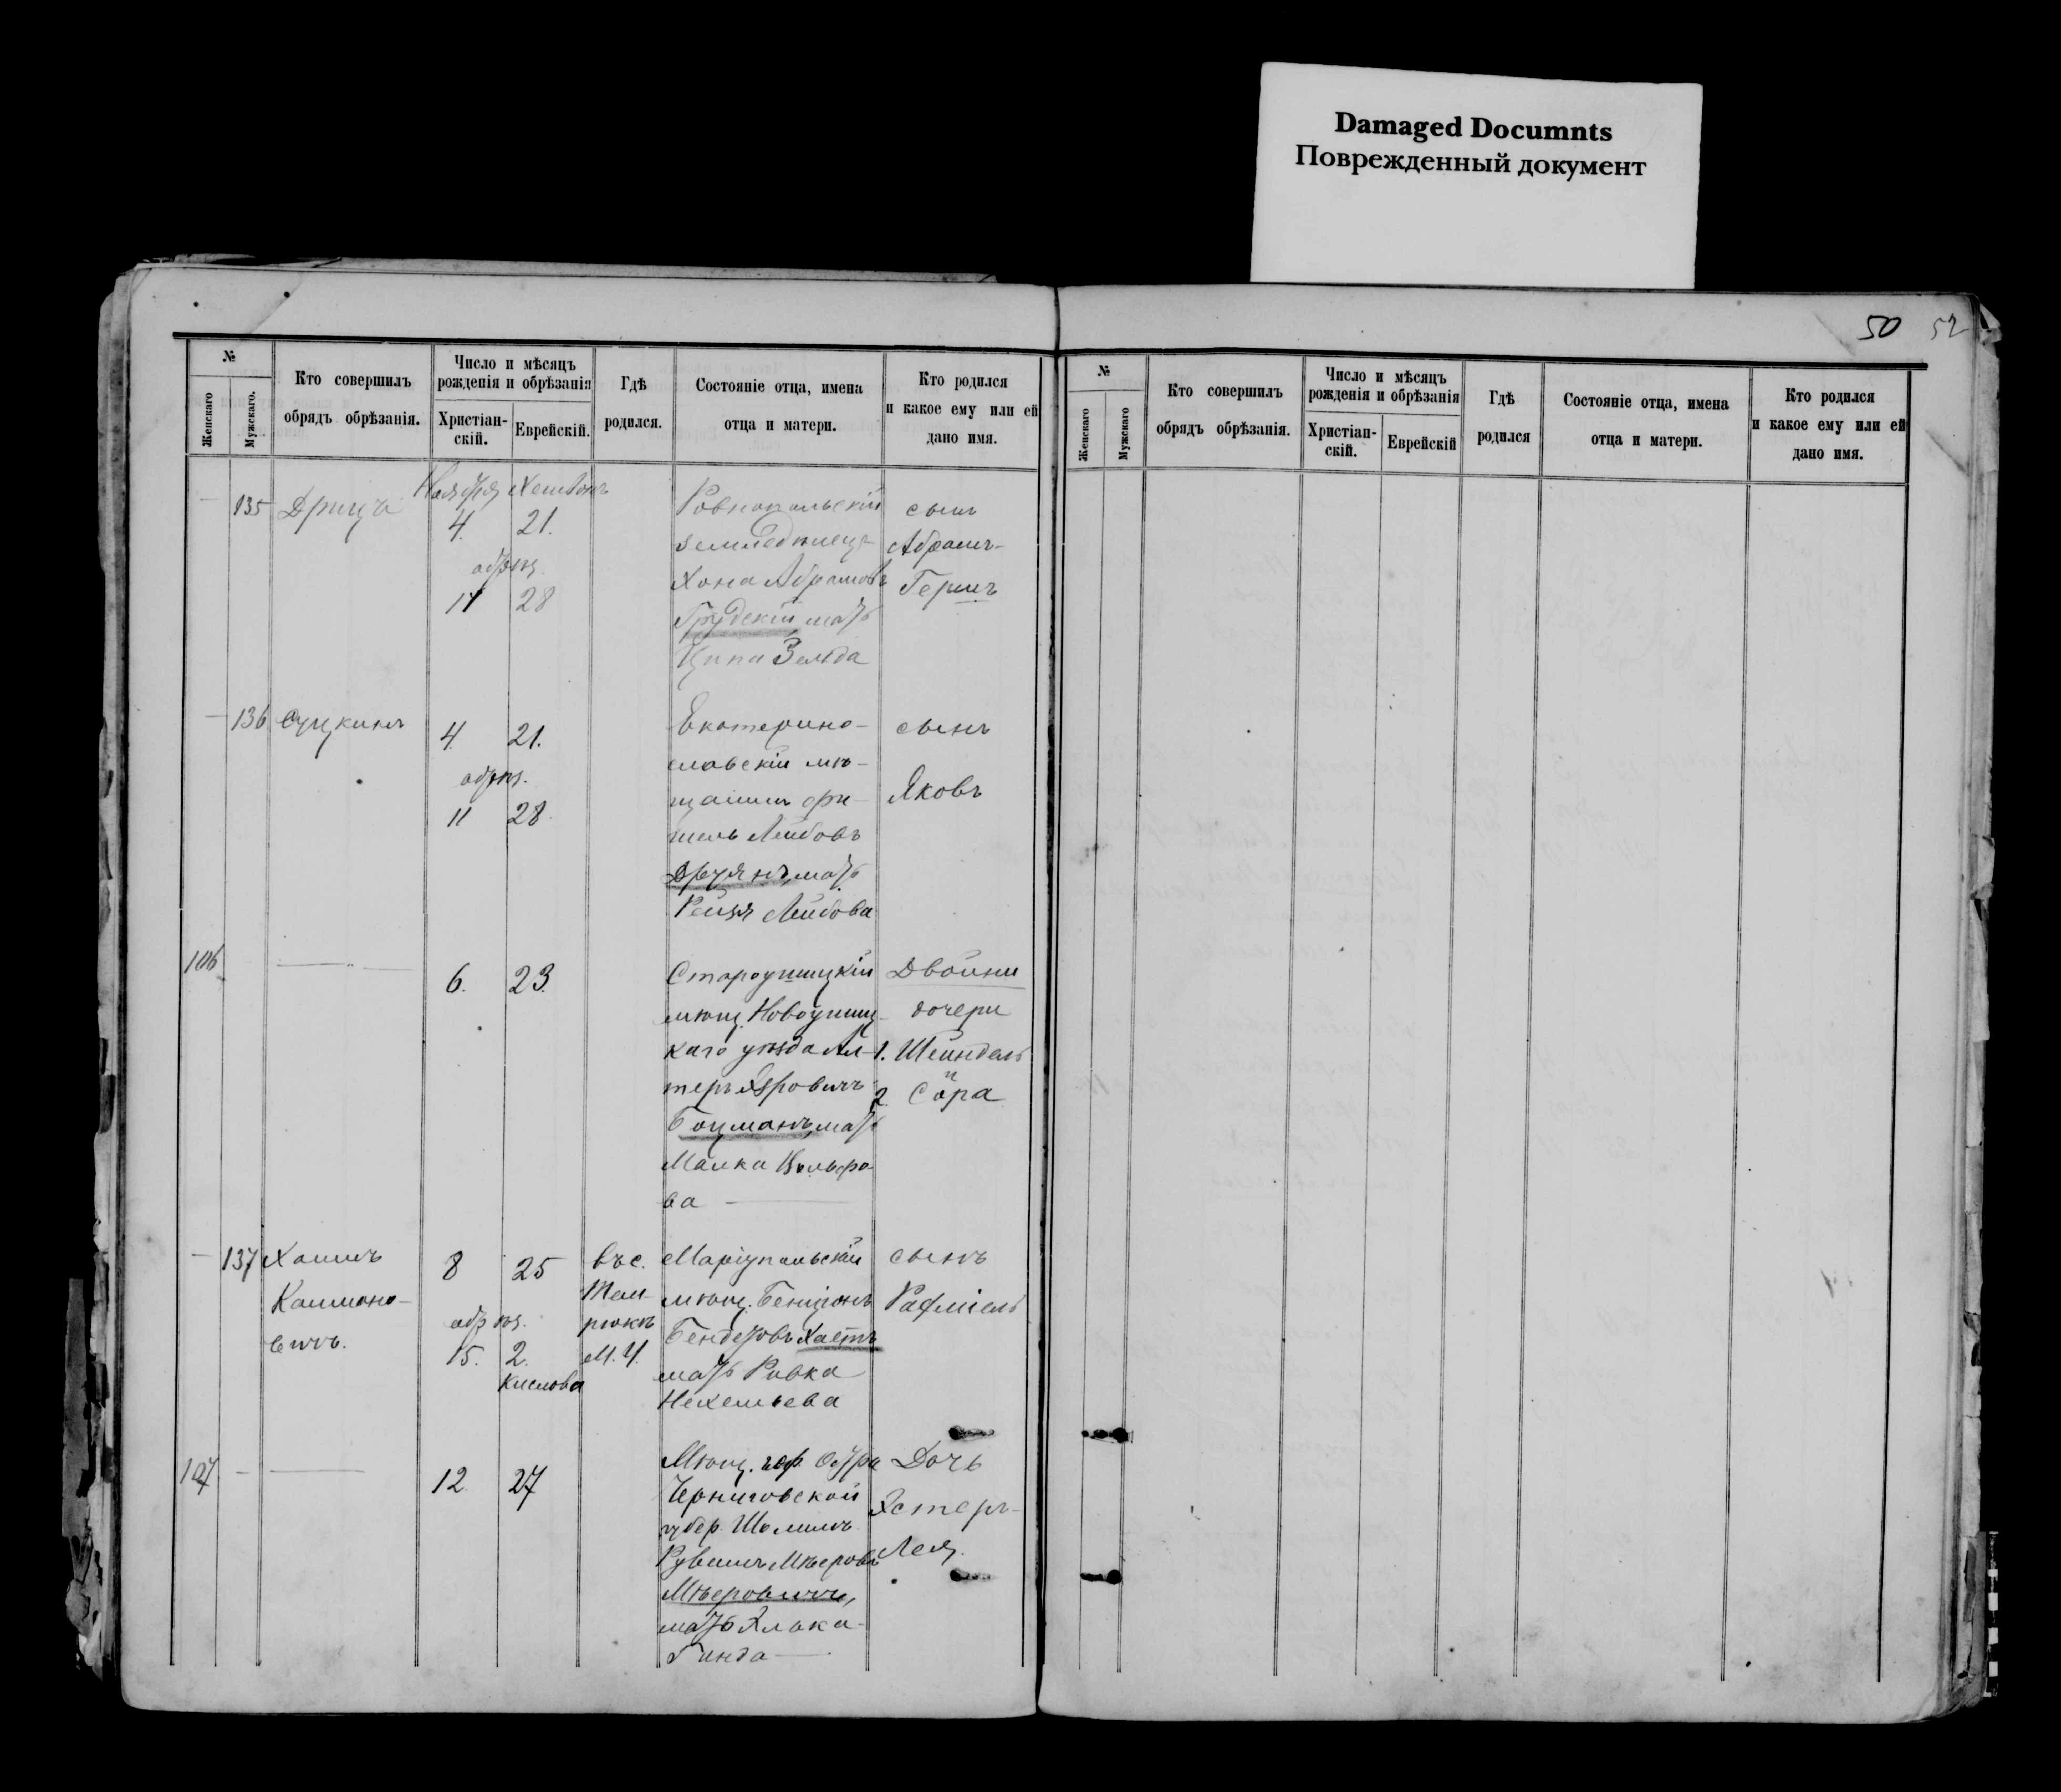 Damaged Documnts
Поврежденный документ
50 52
№
Женскаго
Мужескаго.
Кто совершилъ
обрядъ обрѣзанія.
Число и мѣсяцъ
рожденія и обрѣзанія
Христіан-
скій.
Еврейскій.
Гдѣ
родился.
Состояніе отца, имена
отца и матери.
Кто родился
и какое ему или ей
дано имя.
135 Дрицъ
Ноября Хешвонъ
4. 21.
обрѣз.
11 28
Ровнопольскій
земледѣлецъ
Хона Абрамовъ
Грудскій, мать
Ципа Зельда
сынъ
Абрамъ-
Гершъ
136 Суцкинъ
4. 21.
обрѣз.
11 28
Екатерино-
славскій мѣ-
щанинъ Фи-
шель Лейбовъ
Друянъ, мать
Рейзя Лейбова
сынъ
Яковъ
106
6. 23.
Староушицкій
мѣщ. Новоушиц-
каго уѣзда Ал-
теръ
Боцманъ, мать
Малка Вольфо-
ва
Двойни
дочери
1. Шейндель
и
2. Сора
137 Хаимъ
Калмоно-
вичъ.
8 25
обрѣз.
15. 2.
Кислова
въ с.
Тем-
рюкъ
М. У.
Маріупольскій
мѣщ. Бенціонъ
Бендетовъ Хаетъ
мать Ривка
Нехемьева
сынъ
Рафаіель
107
12. 27
Мѣщ. гор. Остра
Черниговской
губер. Шоломъ
Рувимъ Мѣеровъ
Мѣеровичъ,
мать Элька
Гинда
Дочь
Эстеръ-
Лея.
№
Женскаго
Мужскаго
Кто совершилъ
обрядъ обрѣзанія.
Число и мѣсяцъ
рожденія и обрѣзанія
Христіан-
скій.
Еврейскій
Гдѣ
родился
Состояніе отца, имена
отца и матери.
Кто родился
и какое ему или ей
дано имя.